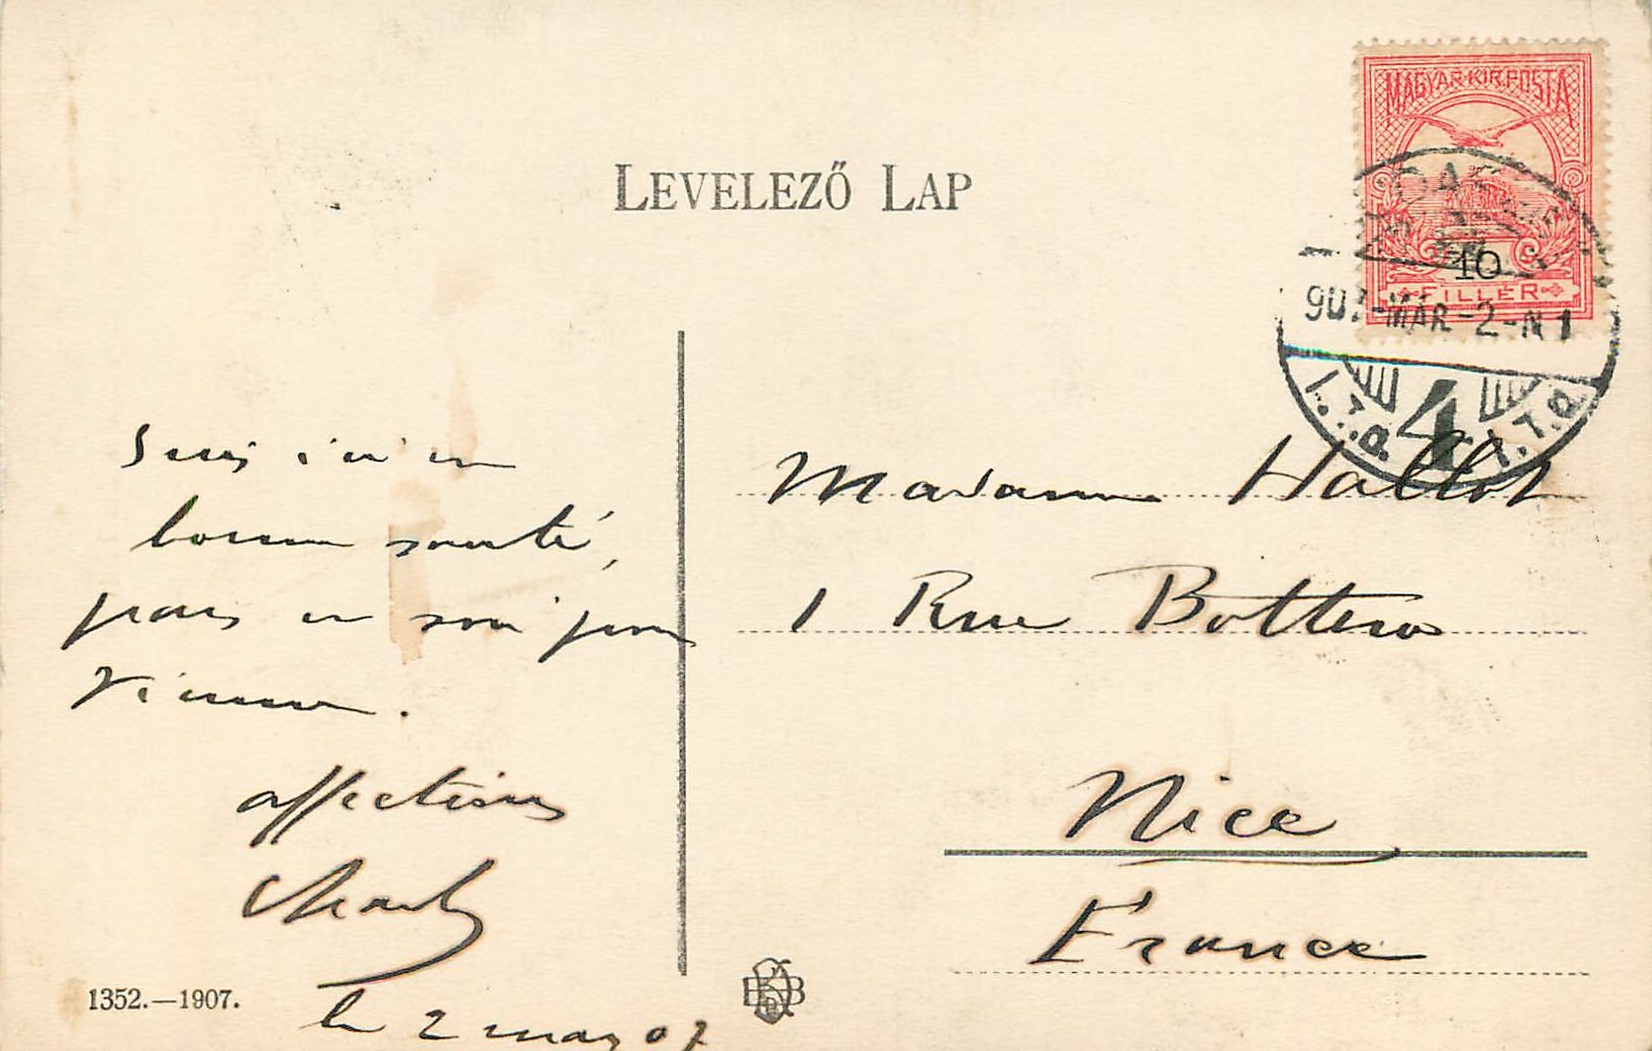 LEVELEZŐ LAP
MAGYAR KIR. POSTA
10
FILLÉR
907-MÁR-2-N1
4
Suis ici en
bonne santé,
pars ce soir pour
Vienne.
affections
Charles
le 2 mars 07
Madame Hallot
1 Rue Bottero
Nice
France
1352.—1907.